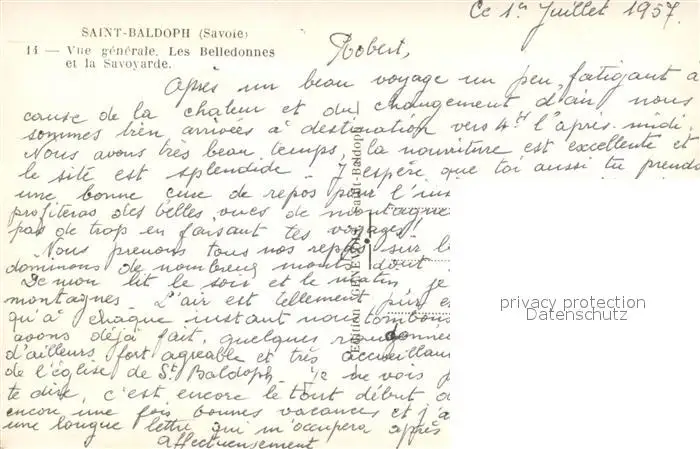 Ce 1er Juillet 1957.
SAINT-BALDOPH (Savoie)
11 — Vue générale. Les Belledonnes
et la Savoyarde.
Robert,
Après un beau voyage un peu fatigant à
cause de la chaleur et du changement d'air nous
sommes bien arrivées à destination vers 4H l'après-midi.
Nous avons très beau temps, la nourriture est excellente et
le site est splendide. J'espère que toi aussi tu prends
une bonne cure de repos pour l'ins
profiteras des belles vues de montagne
pas de trop en faisant tes voyages!
Nous prenons tous nos repas sur l
dominons de nombreux monts dont
De mon lit le soir et le matin, je
montagnes. L'air est tellement pur e
qu'à chaque instant nous tombons
avons déjà fait, quelques
d'ailleurs fort agréable et très accueillan
de l'église de St Baldoph. Je ne vois p
te dire, c'est encore le tout début d
encore une fois bonnes vacances et j'a
une longue lettre qui m'occupera après
Affectueusement
Edition GENEVOIS Saint-Baldoph
privacy protection
Datenschutz